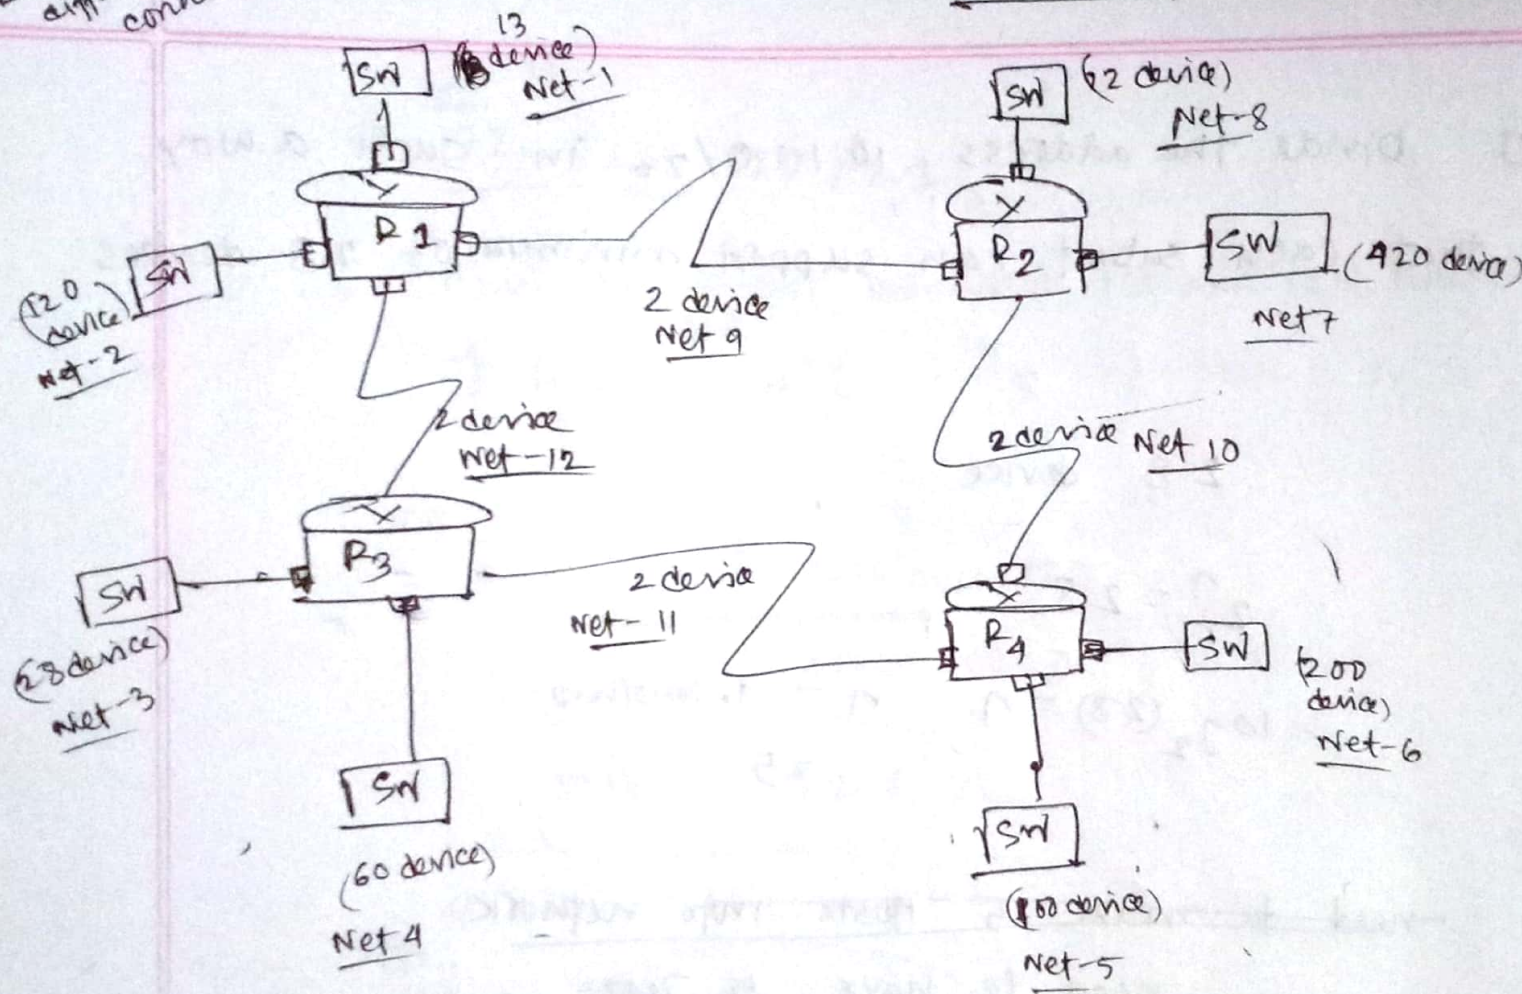 conn
13
device)
Net-1
SW
SW
(2 device)
Net-8
R1
R2
SW
(420 device)
Net 7
SW
device)
Net-2
2 device
Net 9
2 device
Net-12
2 device Net 10
R3
SW
(28 device)
Net-3
2 device
Net-11
R4
SW
(200
device)
Net-6
SW
(60 device)
Net 4
SW
(100 device)
Net-5